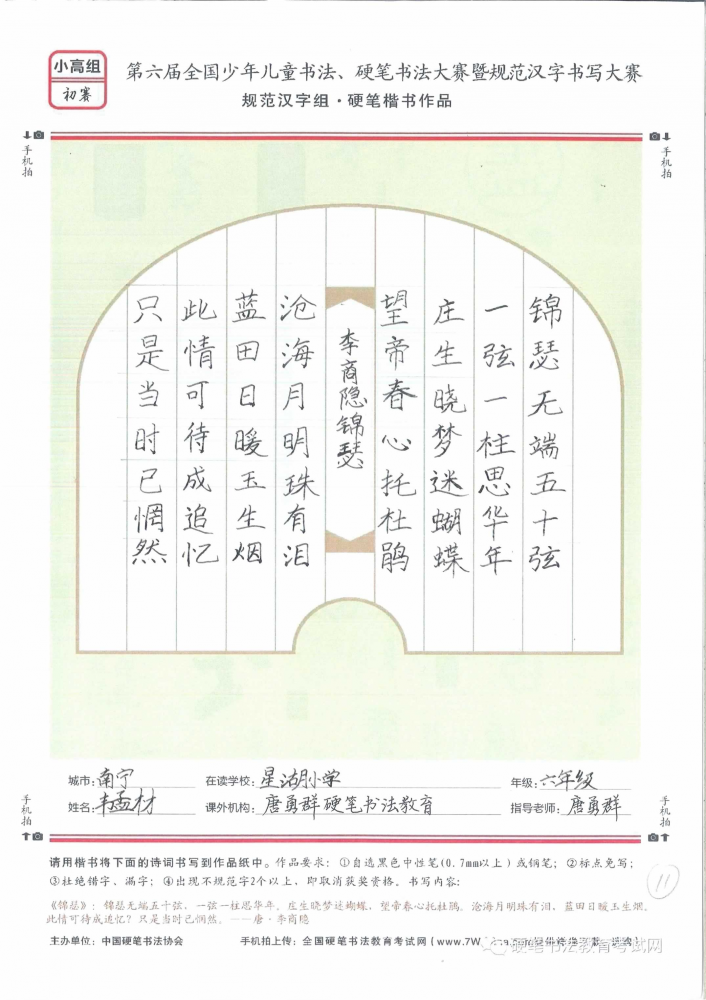 小高组
初赛
第六届全国少年儿童书法、硬笔书法大赛暨规范汉字书写大赛
规范汉字组·硬笔楷书作品
手机拍
手机拍
锦瑟无端五十弦
一弦一柱思华年
庄生晓梦迷蝴蝶
望帝春心托杜鹃
李商隐锦瑟
沧海月明珠有泪
蓝田日暖玉生烟
此情可待成追忆
只是当时已惘然
城市:南宁 在读学校:星湖小学 年级:六年级
姓名:韦孟材 课外机构:唐勇群硬笔书法教育 指导老师:唐勇群
手机拍
手机拍
请用楷书将下面的诗词书写到作品纸中。作品要求:①自选黑色中性笔(0.7mm以上)或钢笔;②标点免写;
③杜绝错字、漏字;④出现不规范字2个以上,即取消获奖资格。书写内容:
11
《锦瑟》:锦瑟无端五十弦,一弦一柱思华年。庄生晓梦迷蝴蝶,望帝春心托杜鹃。沧海月明珠有泪,蓝田日暖玉生烟。
此情可待成追忆?只是当时已惘然。——唐·李商隐
主办单位:中国硬笔书法协会 手机拍上传:全国硬笔书法教育考试网(www.7W
硬笔书法教育考试网